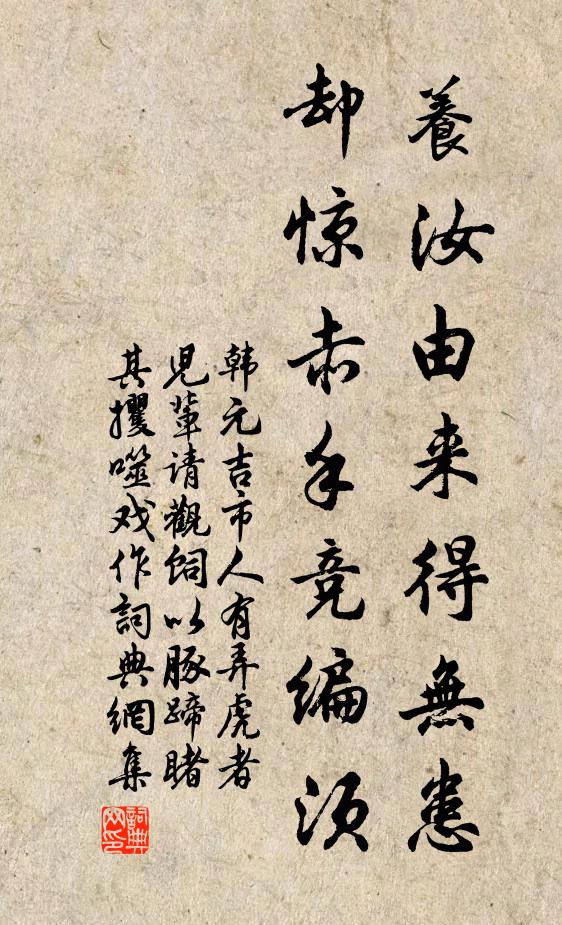 養汝由来得無患
却惊赤手竞编须
韩元吉市人有弄虎者
児辈请觀饲以豚蹄睹
其攫噬戏作詞典網集
詞典
网印